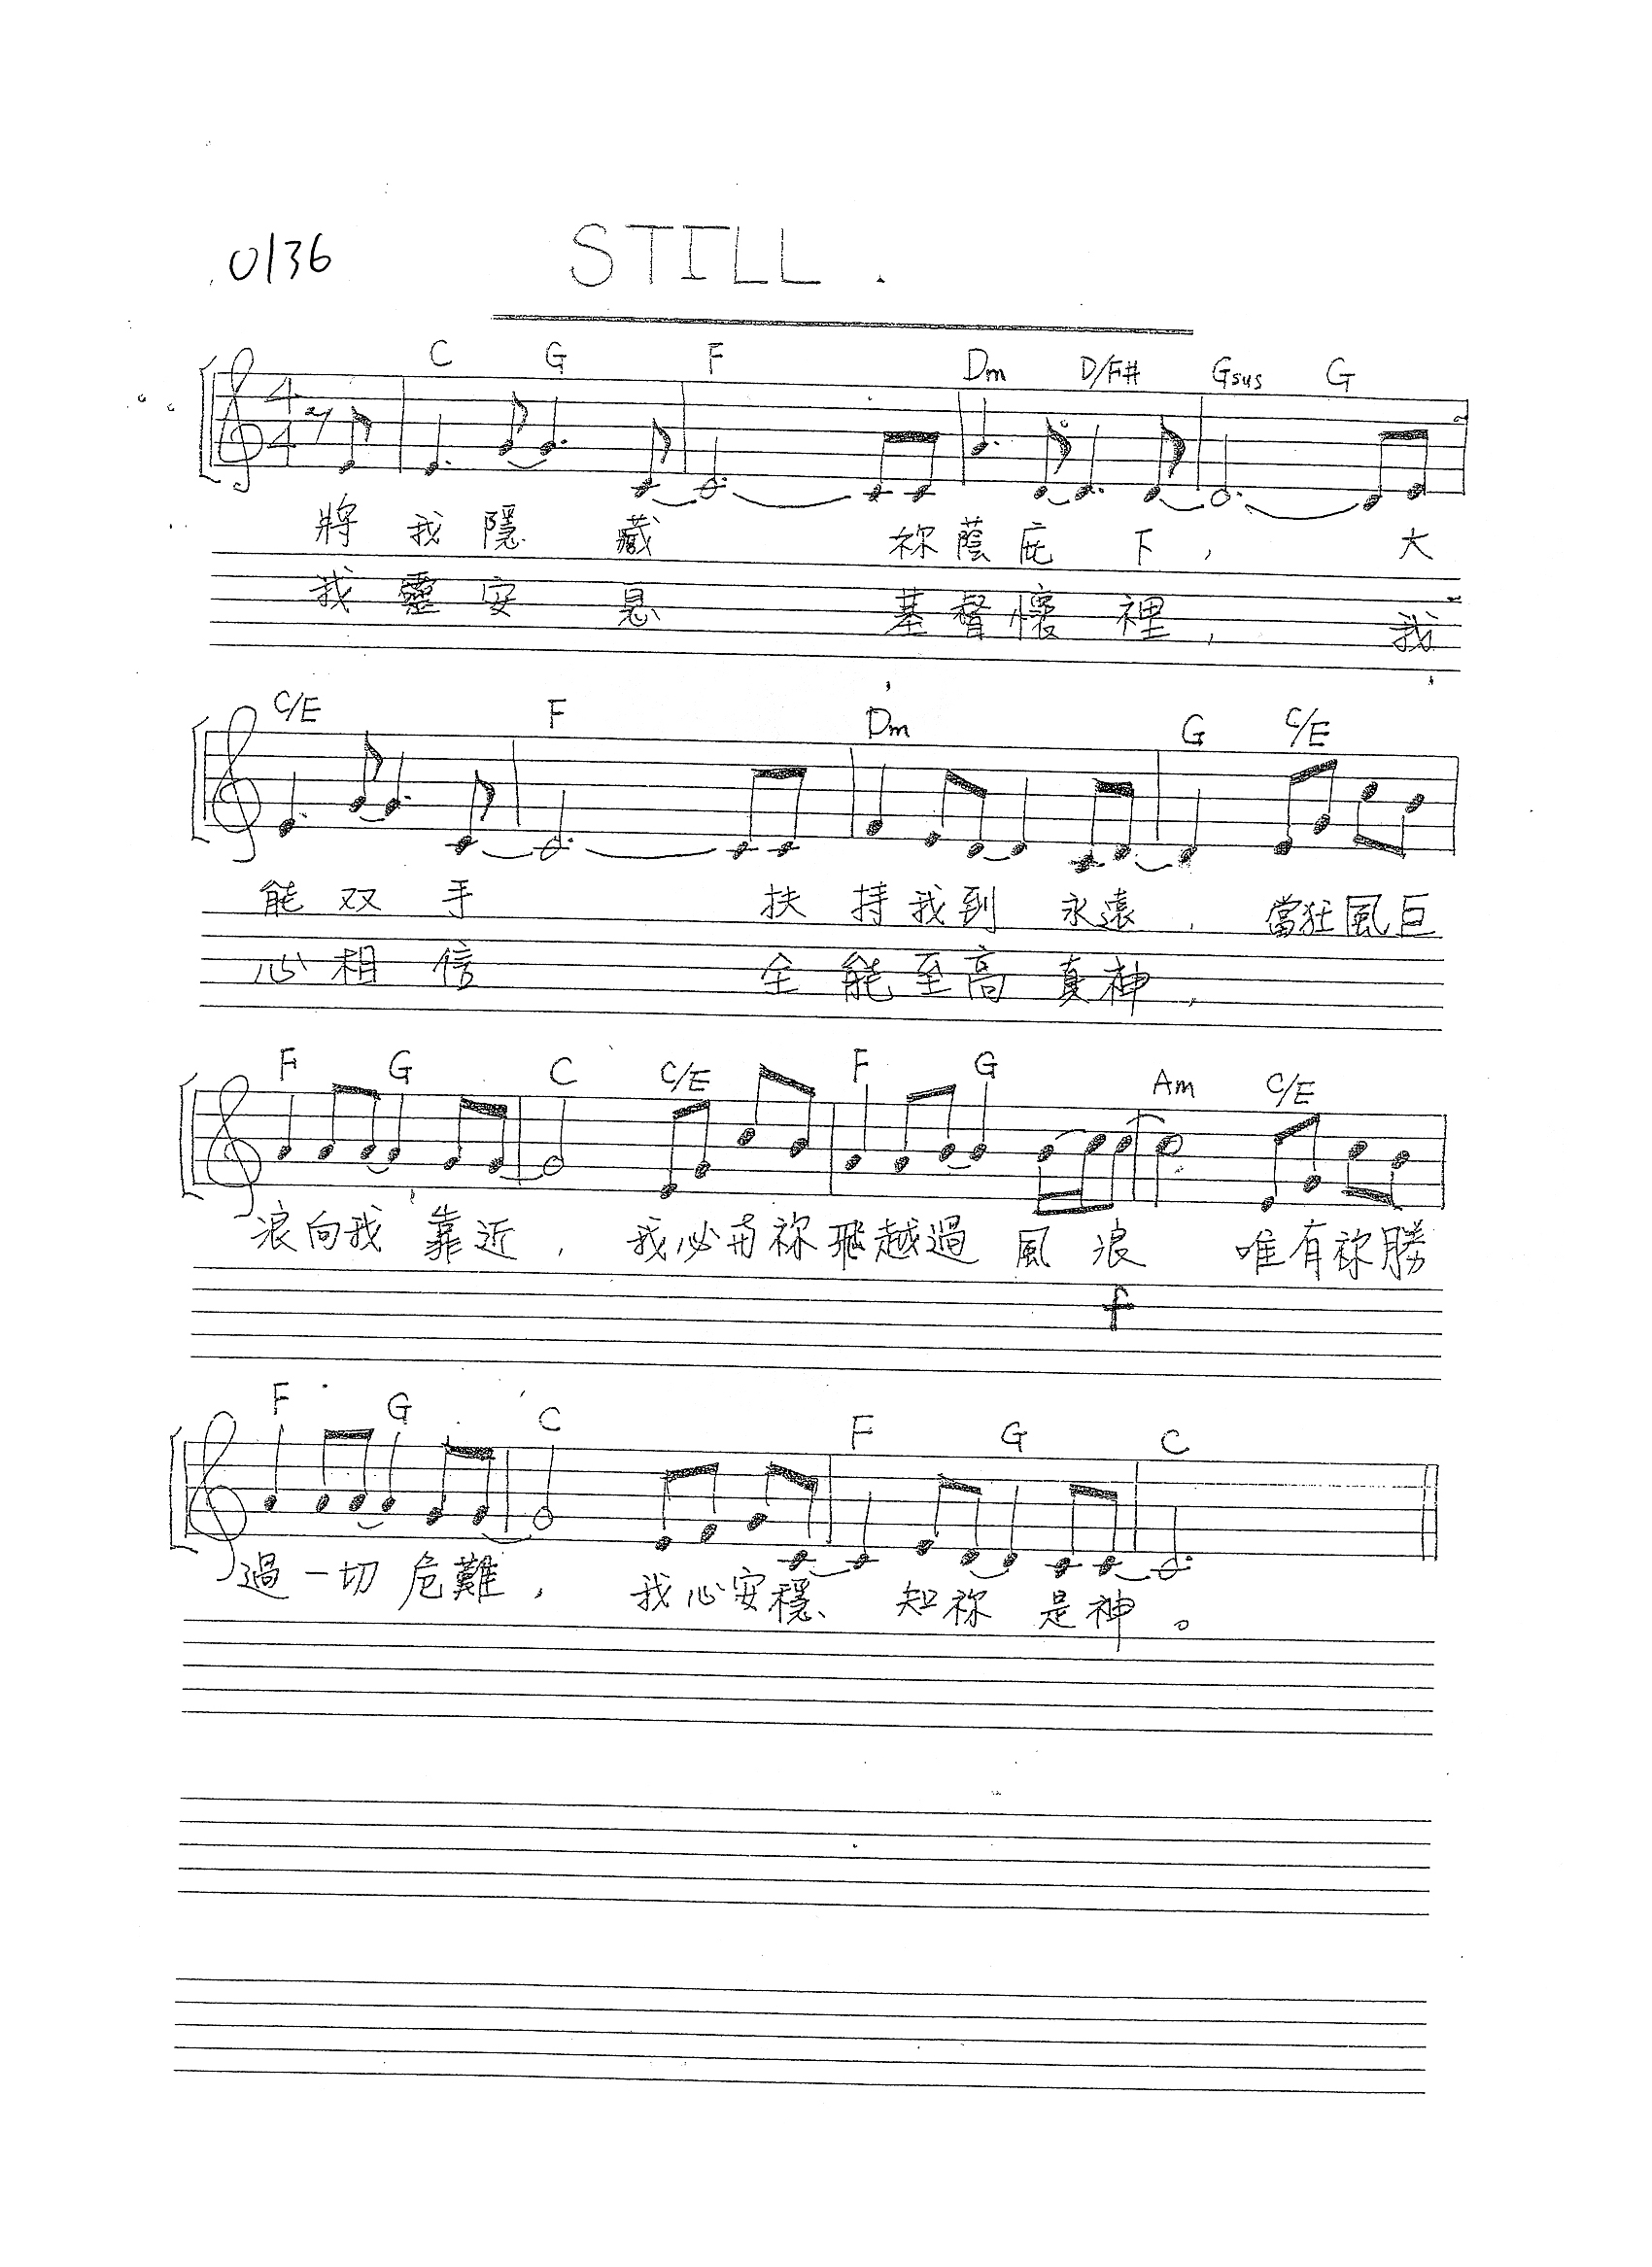 0136 STILL.
C G F Dm D/F# Gsus G
4
4
將我隱藏 祢蔭庇下， 大
我靈安息 基督懷裡， 我
C/E F Dm G C/E
能双手 扶持我到永遠， 當狂風巨
心相信 全能至高真神，
F G C C/E F G Am C/E
浪向我靠近， 我必與祢飛越過風浪 唯有祢勝
f
F G C F G C
過一切危難， 我心安穩、知祢是神。